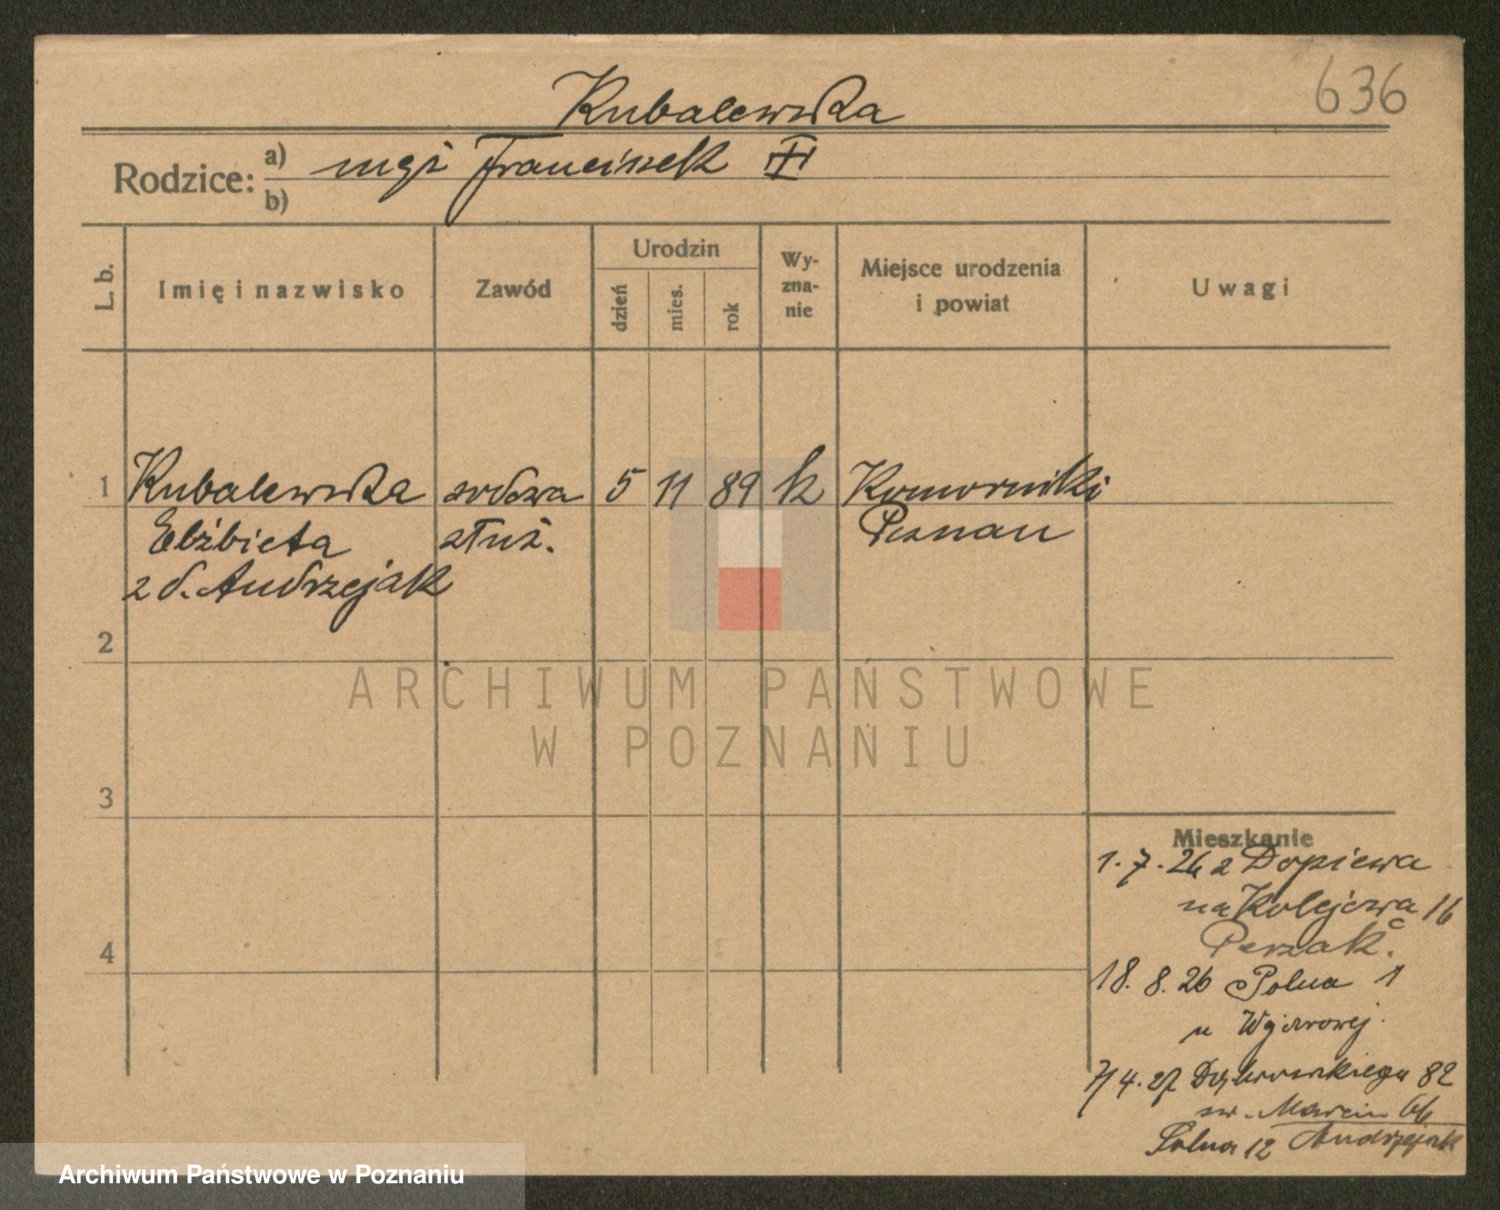 636
Kubalewska
Rodzice: a) mąż Franciszek
b)
L. b.
Imię i nazwisko
Zawód
Urodzin
dzień
mies.
rok
Wy-
zna-
nie
Miejsce urodzenia
i powiat
Uwagi
1 Kubalewska wdowa 5 11 89 k Komorniki
Elżbieta służ. Poznań
z d. Andrzejak
2
3
4
Mieszkanie
1.7.26 z Dopiewa
na Kolejowa 16
18.8.26 Polna 1
u
7/4.27 Dąbrowskiego 82
św. Marcin 66
Polna 12 Andrzejak
ARCHIWUM PAŃSTWOWE
W POZNANIU
Archiwum Państwowe w Poznaniu